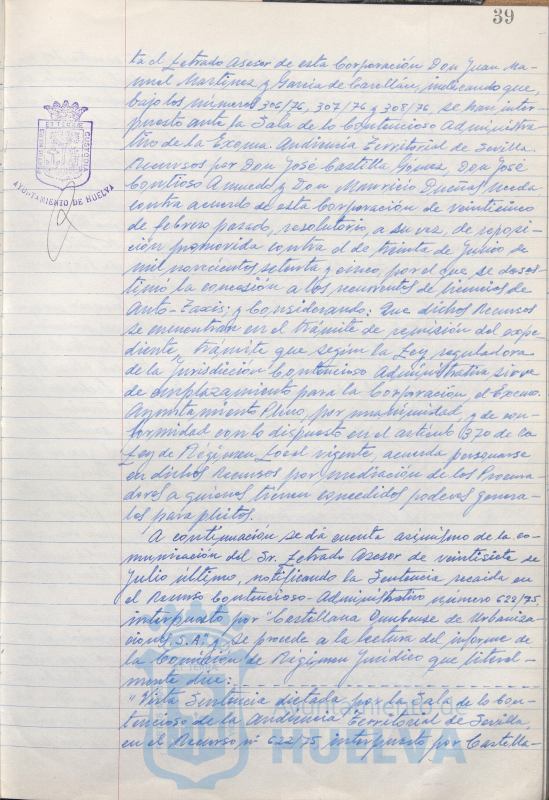 39
ta el Letrado Asesor de esta Corporación Don Juan Ma-
nuel Martínez y García de Carellán, indicando que,
bajo los números 306/76, 307/76 y 308/76, se han inter-
puesto ante la Sala de lo Contencioso Administra-
tivo de la Excma. Audiencia Territorial de Sevilla
Recursos por Don José Castilla Gómez, Don José
Contioso Amuedo y Don Mauricio
contra acuerdo de esta Corporación de veinticinco
de febrero pasado, resolutorio, a su vez, de reposi-
ción promovida contra el de treinta de Junio de
mil novecientos setenta y cinco, por el que se deses-
timó la concesión a los recurrentes de licencias de
Auto-Taxis; y Considerando: Que dichos Recursos
se encuentran en el trámite de remisión del expe-
diente, trámite que según la Ley reguladora
de la Jurisdicción Contencioso Administrativa sirve
de emplazamiento para la Corporación, el Excmo.
Ayuntamiento Pleno, por unanimidad, y de con-
formidad con lo dispuesto en el artículo 370 de la
Ley de Régimen Local vigente, acuerda personarse
en dichos Recursos por mediación de los Procura-
dores a quienes tienen expedidos poderes genera-
les para pleitos.
A continuación se dá cuenta asimismo de la co-
municación del Sr. Letrado Asesor de veintisiete de
Julio último, notificando la Sentencia recaída en
el Recurso Contencioso-Administrativo número 622/75,
interpuesto por "Castellana Onubense de Urbaniza-
ciones, S.A." y se procede a la lectura del informe de
la Comisión de Régimen Jurídico que literal-
mente dice:
"Vista Sentencia dictada por la Sala de lo Con-
tencioso de la Audiencia Territorial de Sevilla
en el Recurso nº 622/75 interpuesto por Castella-
AYUNTAMIENTO DE HUELVA
Ayuntamiento de
HUELVA